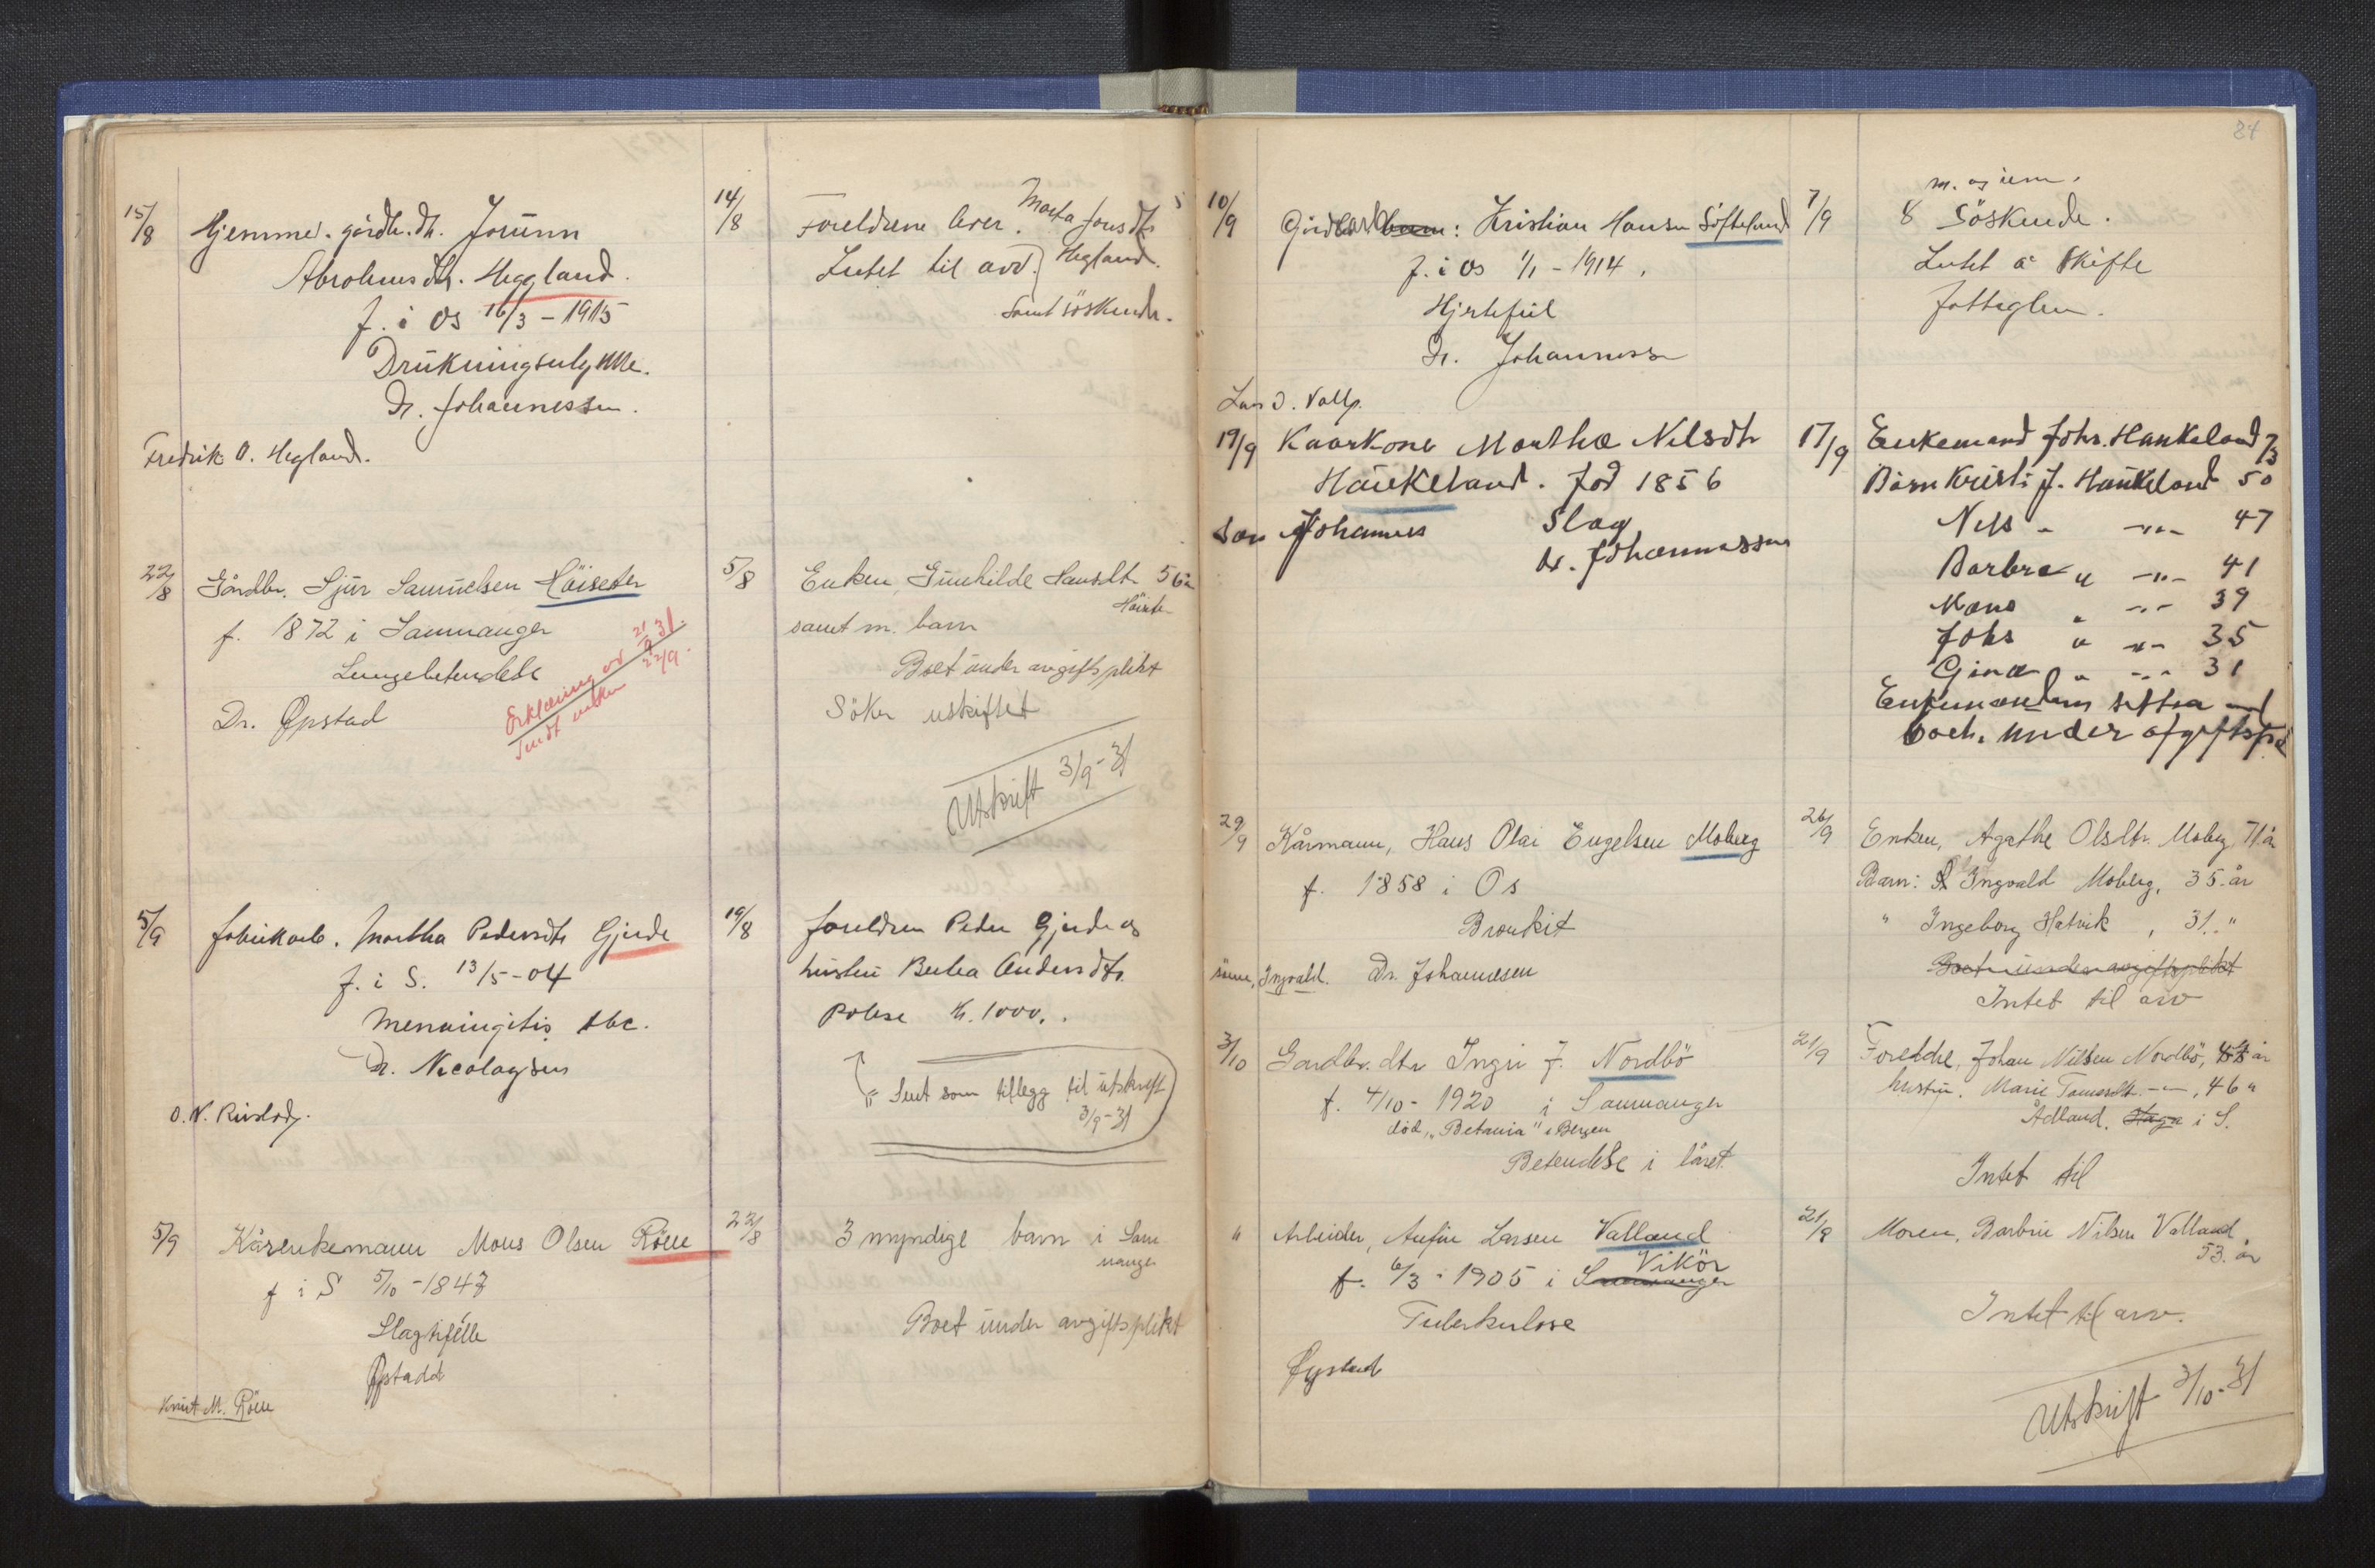 15/8 Hjemmev. gårdbr. dtr. Jorunn
Abrahamsdtr. Hegland.
f. i Os 16/3 - 1915
Drukningsulykke.
Dr. Johannessen.
Fredrik O. Hegland.
14/8 Foreldrene lever. Marta Jonsdtr
Intet til arv. Hegland.
Samt søskende.
22/8 Gårdbr. Sjur Samuelsen Höiseter
f. 1872 i Samnanger
Lungebetendelse
Dr. Øpstad
Erklæring av 21/9 31.
sendt enken 22/9.
5/8 Enken, Gunhilde Hansdtr. 56 år
Höiseter
samt m. barn
Boet under avgiftsplikt
Söker uskiftet
Utskrift 3/9-31
5/9 fabrikarb. Martha Pedersdtr Gjerde
f. i S. 13/5 - 04
Menningitis tbc.
Dr. Nicolaysen
O. N.
19/8 foreldren Peder Gjerde og
hustru Berta Andersdtr.
Polise kr. 1000.
Sent som tillegg til utskrift
3/9-31
5/9 Kårenkemann Mons Olsen Röen
f i S 5/10 - 1847
Slagtifelle
Øpstadd
Knut M. Röen
22/8 3 myndige barn i Sam
nanger
Boet under avgiftsplikt
84
10/9 Gårdbarn: Kristian Hansen Söfteland
f. i Os 1/1 - 1914.
Hjertefeil
Dr. Johannessen
7/9 m. og um.
8 Söskende.
Intet å skifte
fattiglem.
Lars O. Valle.
19/9 Kaarkone Martha Nilsdtr
Haukeland. Fød 1856
søn Johannes Slag
Dr. Johannessen
17/9 Enkemand Johs. Haukeland 73
Børn Kristi J. Haukeland 50
Nils " -"- 47
Barbra " -"- 41
Mons " -"- 39
Johs " -"- 35
Gina " -"- 31
Enkemanden sitter
boet. under afgiftspl
29/9 Kårmann, Hans Olai Engelsen Moberg
f. 1858 i Os
Bronkit
Ingvald. Dr. Johannesen
26/9 Enken, Agathe Olsdtr. Moberg 71 år
Barn: Ingvald Moberg, 35. år
" Ingeborg Hatvik, 31. "
Boet under avgiftsplikt
Intet til arv
3/10 Gardbr. dtr Inger J. Nordbö
f. 4/10 - 1920 i Samnanger
död, "Betania" i Bergen
Betendelse i låret
21/9 Foreldre, Johan Nilsen Nordbö, år
hustru. Marie -"-, 46 "
Ådland. Haga i S.
Intet til
" Arbeider, Anfin Larsen Valland
Vikör
f. 6/3 - 1905 i Samnanger
Tuberkulose
Øystad
21/8 Moren, Barbra Nilsen Valland,
53. år
Intet til arv.
Utskrift 3/10-31